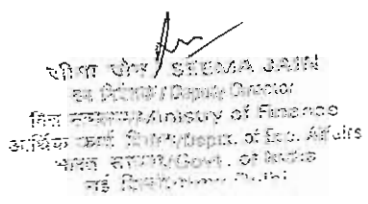 सीमा जैन / SEEMA JAIN
उप निदेशक / Deputy Director
वित्त मंत्रालय/Ministry of Finance
आर्थिक कार्य विभाग/Deptt. of Eco. Affairs
भारत सरकार/Govt. of India
नई दिल्ली/New Delhi